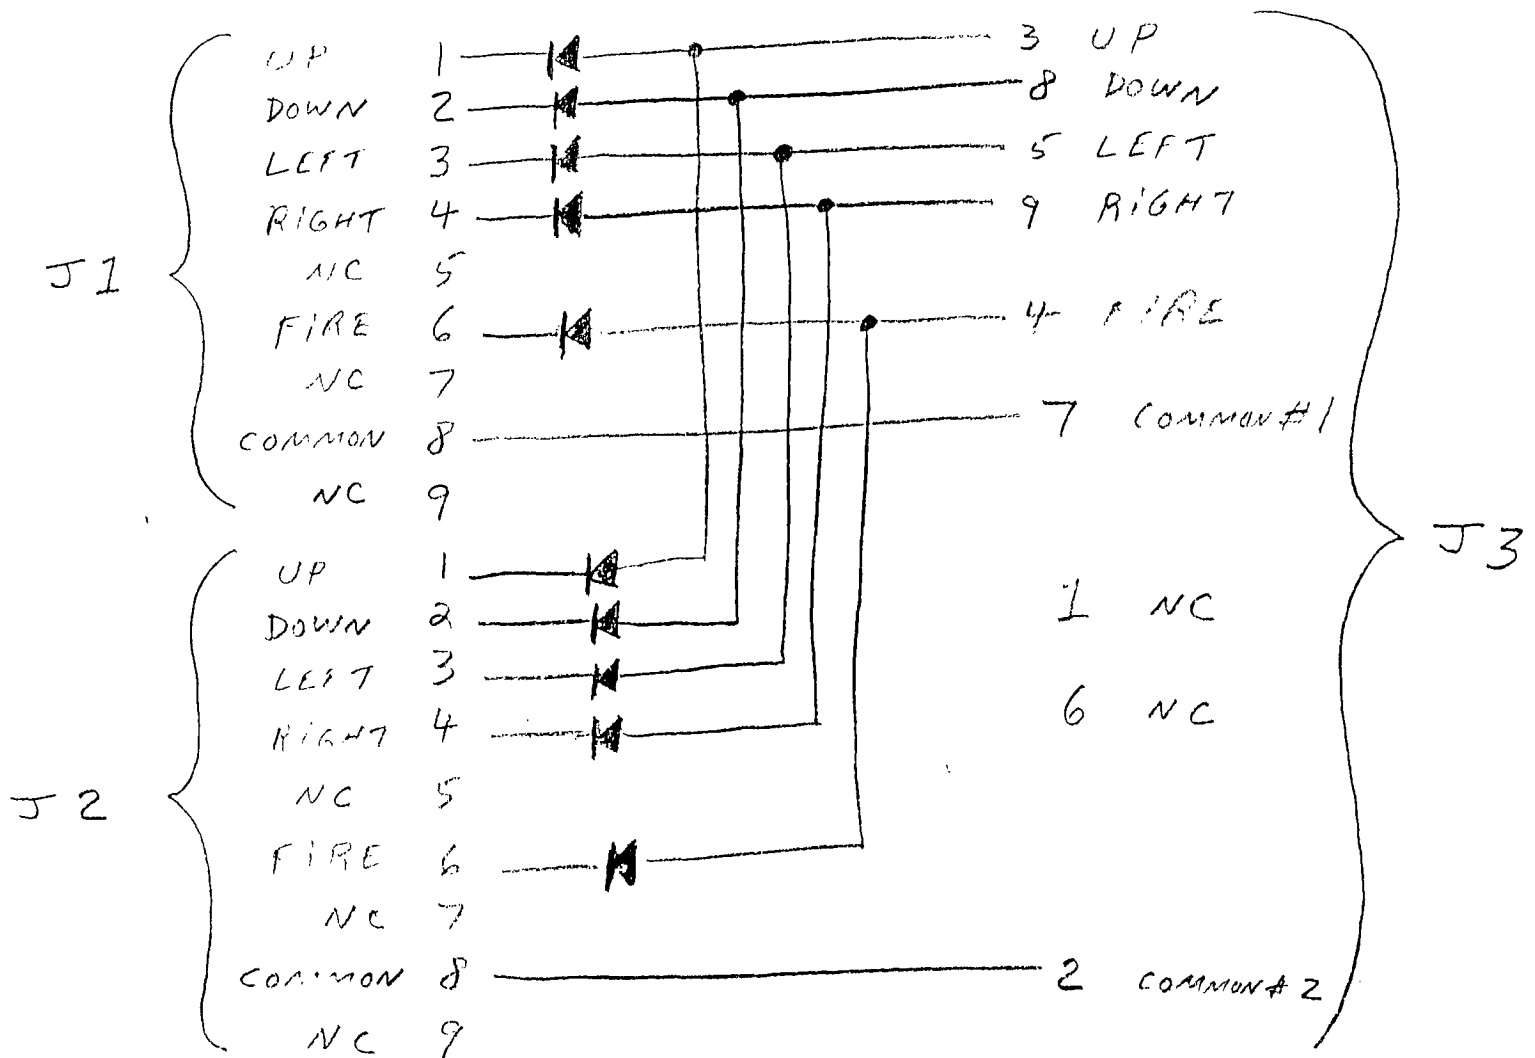 J1
UP 1
DOWN 2
LEFT 3
RIGHT 4
NC 5
FIRE 6
NC 7
COMMON 8
NC 9
J2
UP 1
DOWN 2
LEFT 3
RIGHT 4
NC 5
FIRE 6
NC 7
COMMON 8
NC 9
3 UP
8 DOWN
5 LEFT
9 RIGHT
4 FIRE
7 COMMON#1
1 NC
6 NC
2 COMMON#2
J3